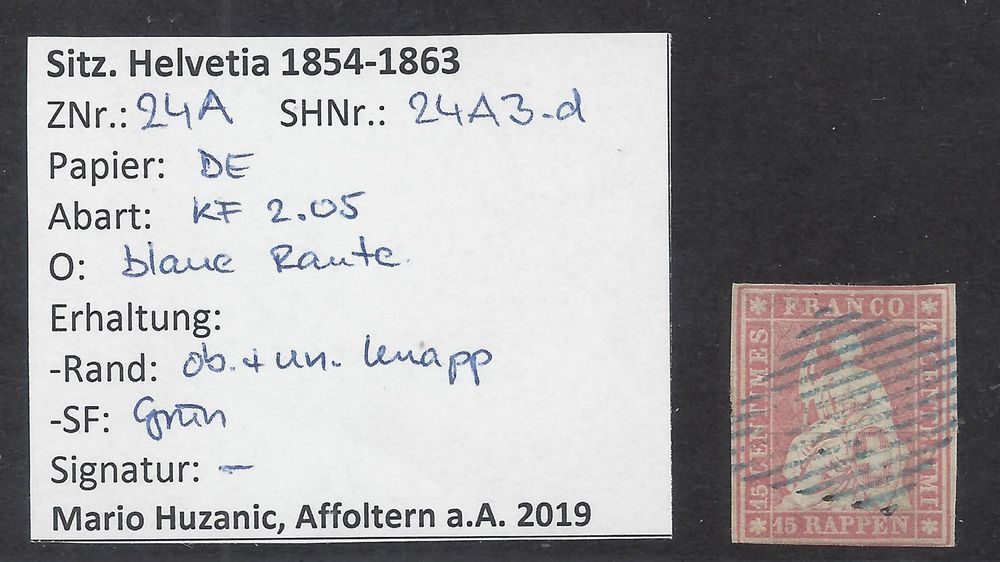 Sitz. Helvetia 1854-1863
ZNr.: 24A SHNr.: 24A3.d
Papier: DE
Abart: KF 2.05
O: blaue Raute.
Erhaltung:
-Rand: ob. + un. knapp
-SF: Grün
Signatur: –
Mario Huzanic, Affoltern a.A. 2019
FRANCO
15 CENTIMES
15 CENTESIMI
15 RAPPEN